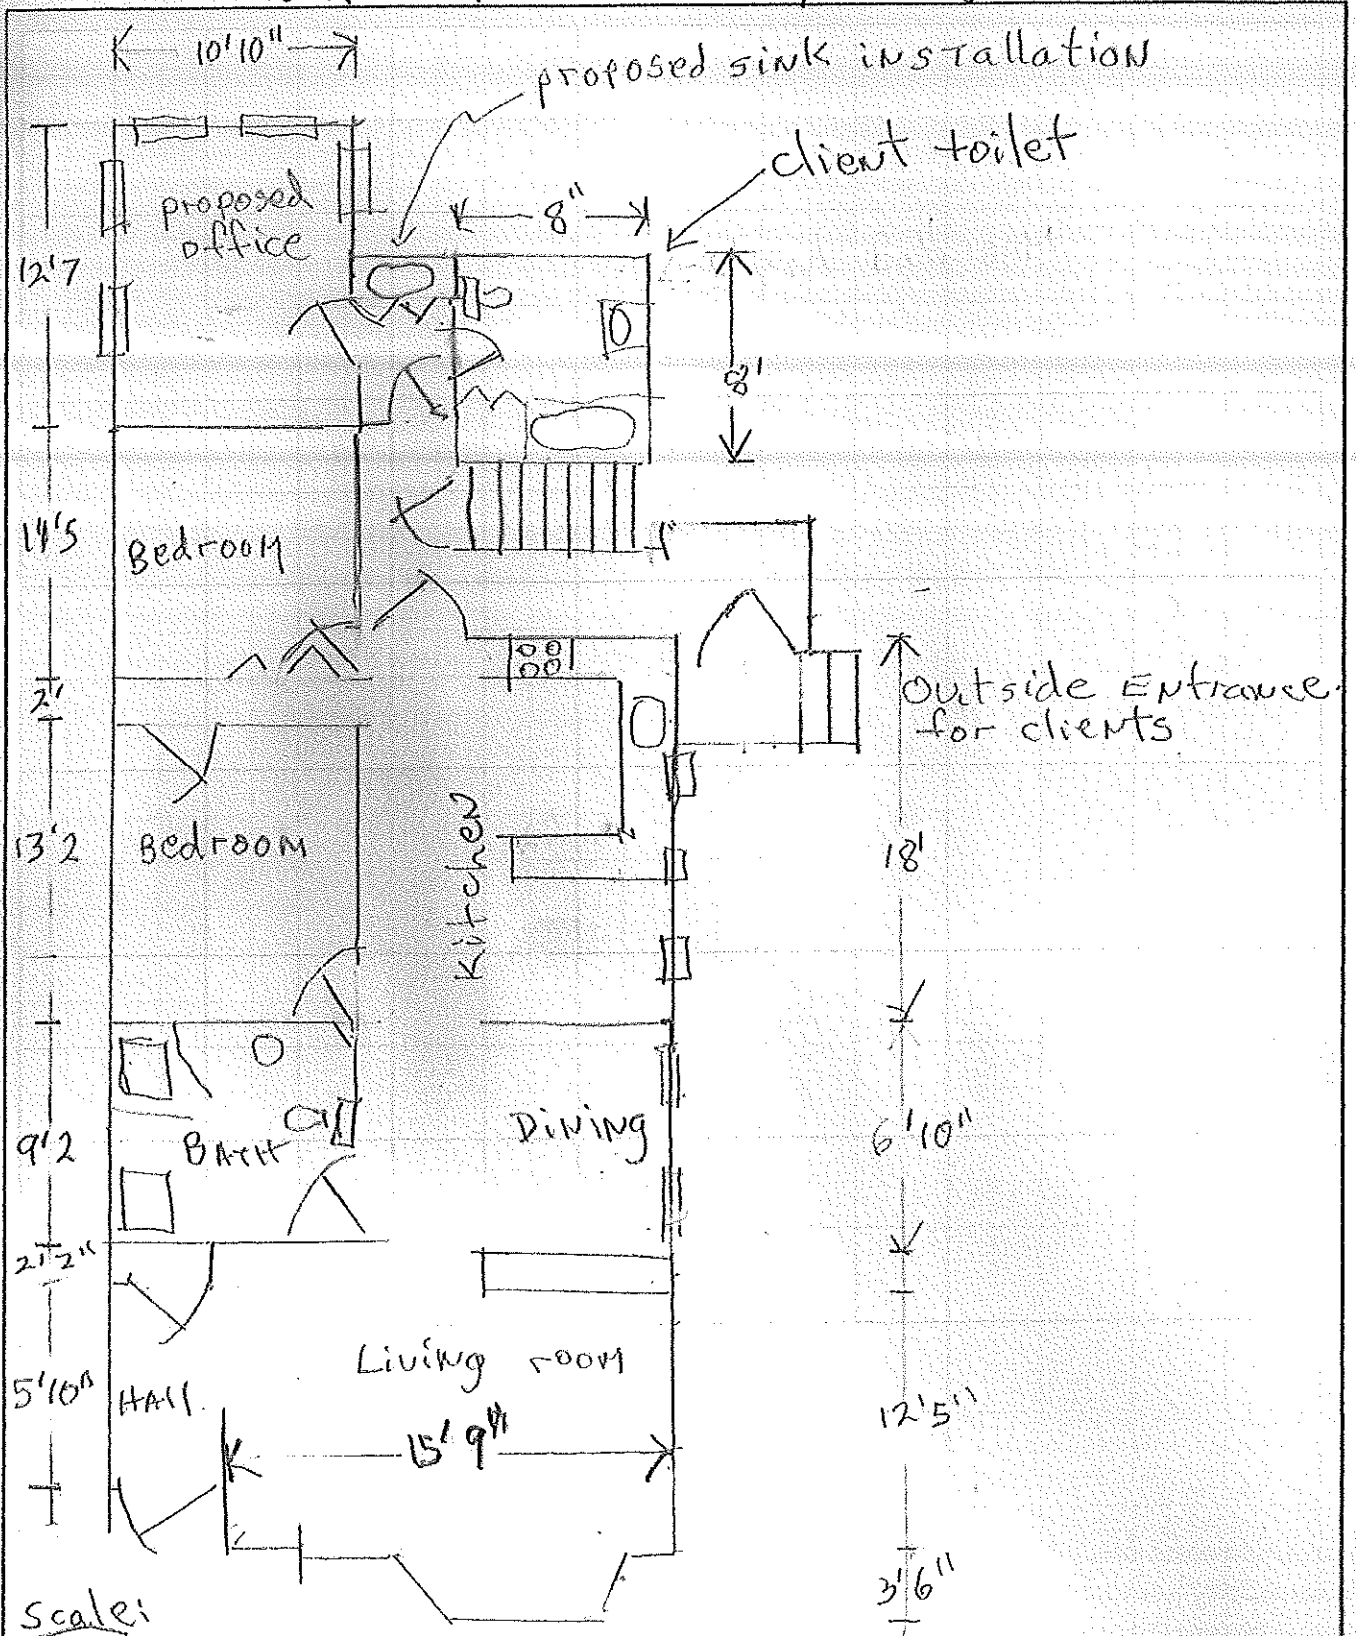 10'10"
proposed sink installation
client toilet
proposed
office
8"
12'7
8'
Bedroom
2'
Outside Entrance
for clients
Kitchen
13'2
Bedroom
18'
9'2
BATH
Dining
6'10"
2'2"
Living room
5'10"
HAll
15'9"
12'5"
3'6"
Scale: